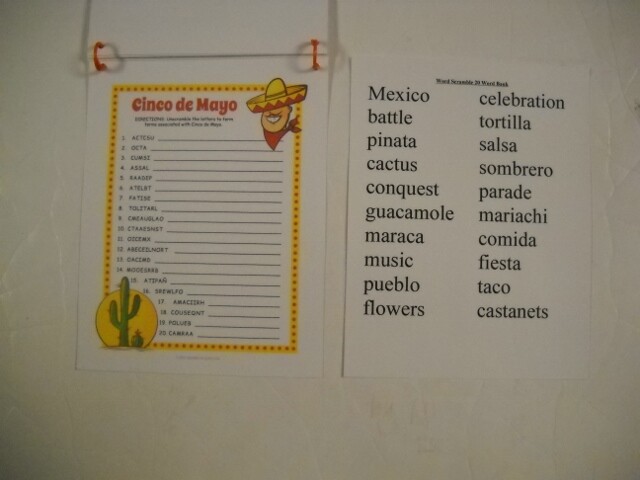 Cinco de Mayo
DIRECTIONS: Unscramble the letters to form
terms associated with Cinco de Mayo.
1.
2. OCTA
3. CUMSI
4. ASSAL
5. RAADEP
6. ATELBT
7. FATISE
8. TOLITARL
9. CMEAUGLAO
10. CTAAESNST
11. OICEMX
12. ABECEILNORT
13. OACIMD
14. MOOESRRB
15. ATIPAÑ
16. SREWLFO
17. AMACIIRH
18. COUSEQNT
19. POLUEB
20. CAMRAA
Word Scramble 20 Word Bank
Mexico
battle
pinata
cactus
conquest
guacamole
maraca
music
pueblo
flowers
celebration
tortilla
salsa
sombrero
parade
mariachi
comida
fiesta
taco
castanets